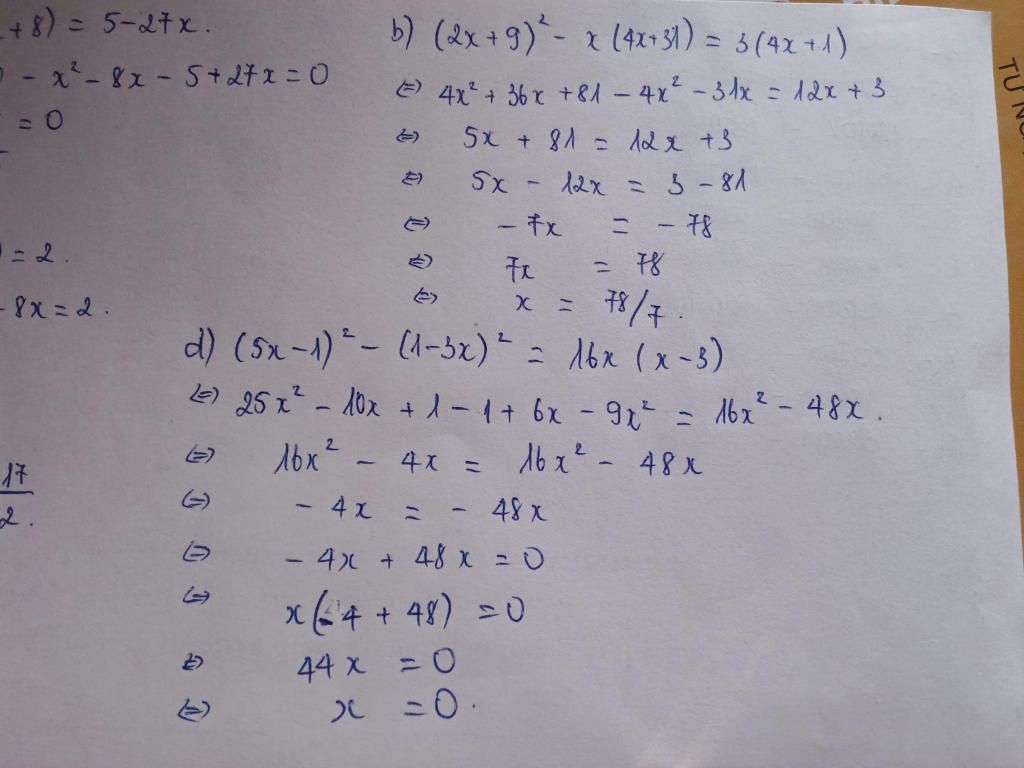 +8) = 5-27x.
- x² - 8x - 5 + 27x = 0
= 0
= 2.
- 8x = 2.
17
2.
b) (2x+9)² - x(4x+31) = 3(4x+1)
(=) 4x² + 36x + 81 - 4x² - 31x = 12x + 3
(=) 5x + 81 = 12x + 3
(=) 5x - 12x = 3 - 81
(=) - 7x = - 78
(=) 7x = 78
(=) x = 78/7.
d) (5x-1)² - (1-3x)² = 16x (x-3)
(=) 25x² - 10x + 1 - 1 + 6x - 9x² = 16x² - 48x.
(=) 16x² - 4x = 16x² - 48x
(=) - 4x = - 48x
(=) - 4x + 48x = 0
(=) x(-4 + 48) = 0
(=) 44x = 0
(=) x = 0.